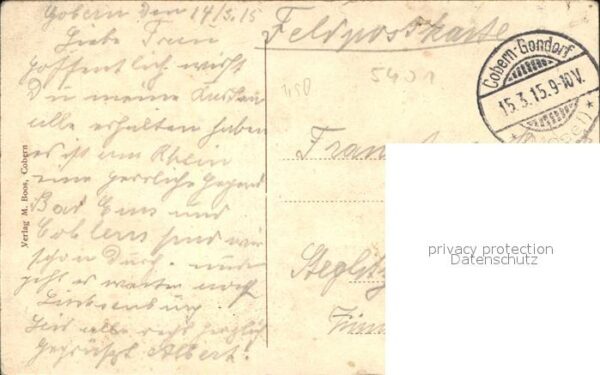 Cobern den 14/3.15
Liebe
Hoffentlich wirst
Du meine Karten
alle erhalten haben
es ist am Rhein
eine herrliche Gegend
Bad Ems und
Coblenz sind wir
schon durch. nun
geht es weiter nach
Seid alle recht herzlich
gegrüsst Albert.
Verlag M. Boos, Cobern
Feldpostkarte
5401
Cobern-Gondorf
15.3.15.9-10V.
(Mosel)
Steglitz
privacy protection
Datenschutz